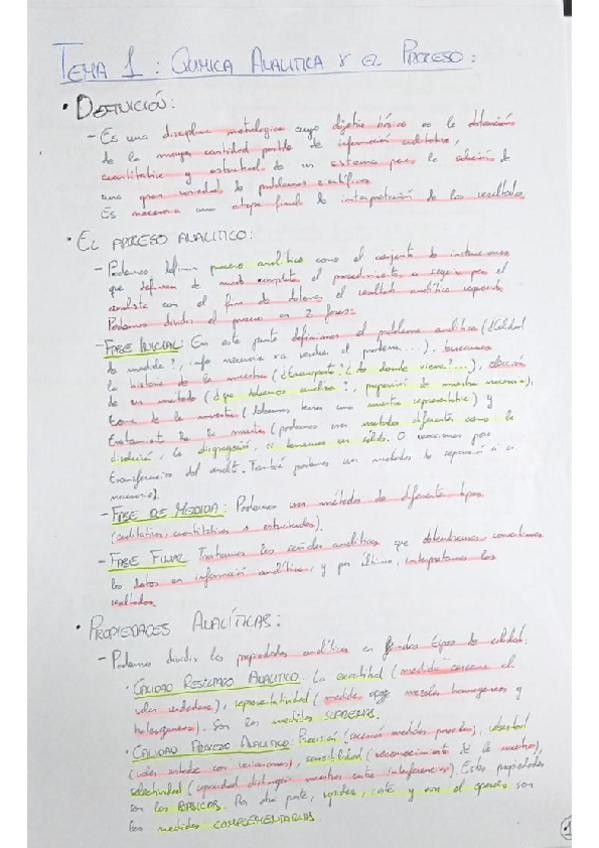 TEMA 1: QUIMICA ANALITICA Y EL PROCESO:
• DEFINICIÓN:
- Es una disciplina metrologica cuyo objetivo básico es la obtención
de la mayor cantidad posible de información cualitativa,
cuantitativa y estructural de un sistema para la solución de
una gran variedad de problemas científicos.
Es necesaria una etapa final de interpretación de los resultados
• EL PROCESO ANALITICO:
- Podemos definir proceso analítico como el conjunto de instrucciones
que definen de modo completo el procedimiento a seguir por el
analista con el fin de obtener el resultado analítico requerido
Podemos dividir el proceso en 3 fases:
- FASE INICIAL: En este punto definimos el problema analitico (¿Calidad
de medida?, info necesaria para resolver el problema...), buscamos
la historia de la muestra (¿transporte? ¿de donde viene?...), elección
de un método (¿que debemos analizar?, preparación de muestra necesaria),
toma de la muestra (debemos tener una muestra representativa) y
tratamiento de la muestra (podemos usar metodos diferentes como la
disolución, la disgregación, si tenemos un sólido. O reacciones para
transferencia del analito. También podemos usar metodos de separación si es
necesario).
- FASE DE MEDIDA: Podemos usar métodos de diferentes tipos
(cualitativos, cuantitativos o estructurales).
- FASE FINAL: Tratamos las señales analiticas que obtendremos, convertimos
los datos en información analítica, y por último, interpretamos los
resultados.
• PROPIEDADES ANALÍTICAS:
- Podemos dividir las propiedades analíticas en tipos de calidad:
• CALIDAD RESULTADO ANALITICO: La exactitud (medida cercana al
valor verdadero), representatividad (medida mezclas homogeneas y
heterogeneas). Son las medidas SUPREMAS.
• CALIDAD PROCESO ANALITICO: Precisión (cercania medidas), robustez
(valor estable con variaciones), sensibilidad (reconocimiento de la muestra),
selectividad (capacidad distinguir muestras entre interferencias). Estas propiedades
son las BÁSICAS. Por otra parte, rapidez, coste y son
las medidas COMPLEMENTARIAS.
1